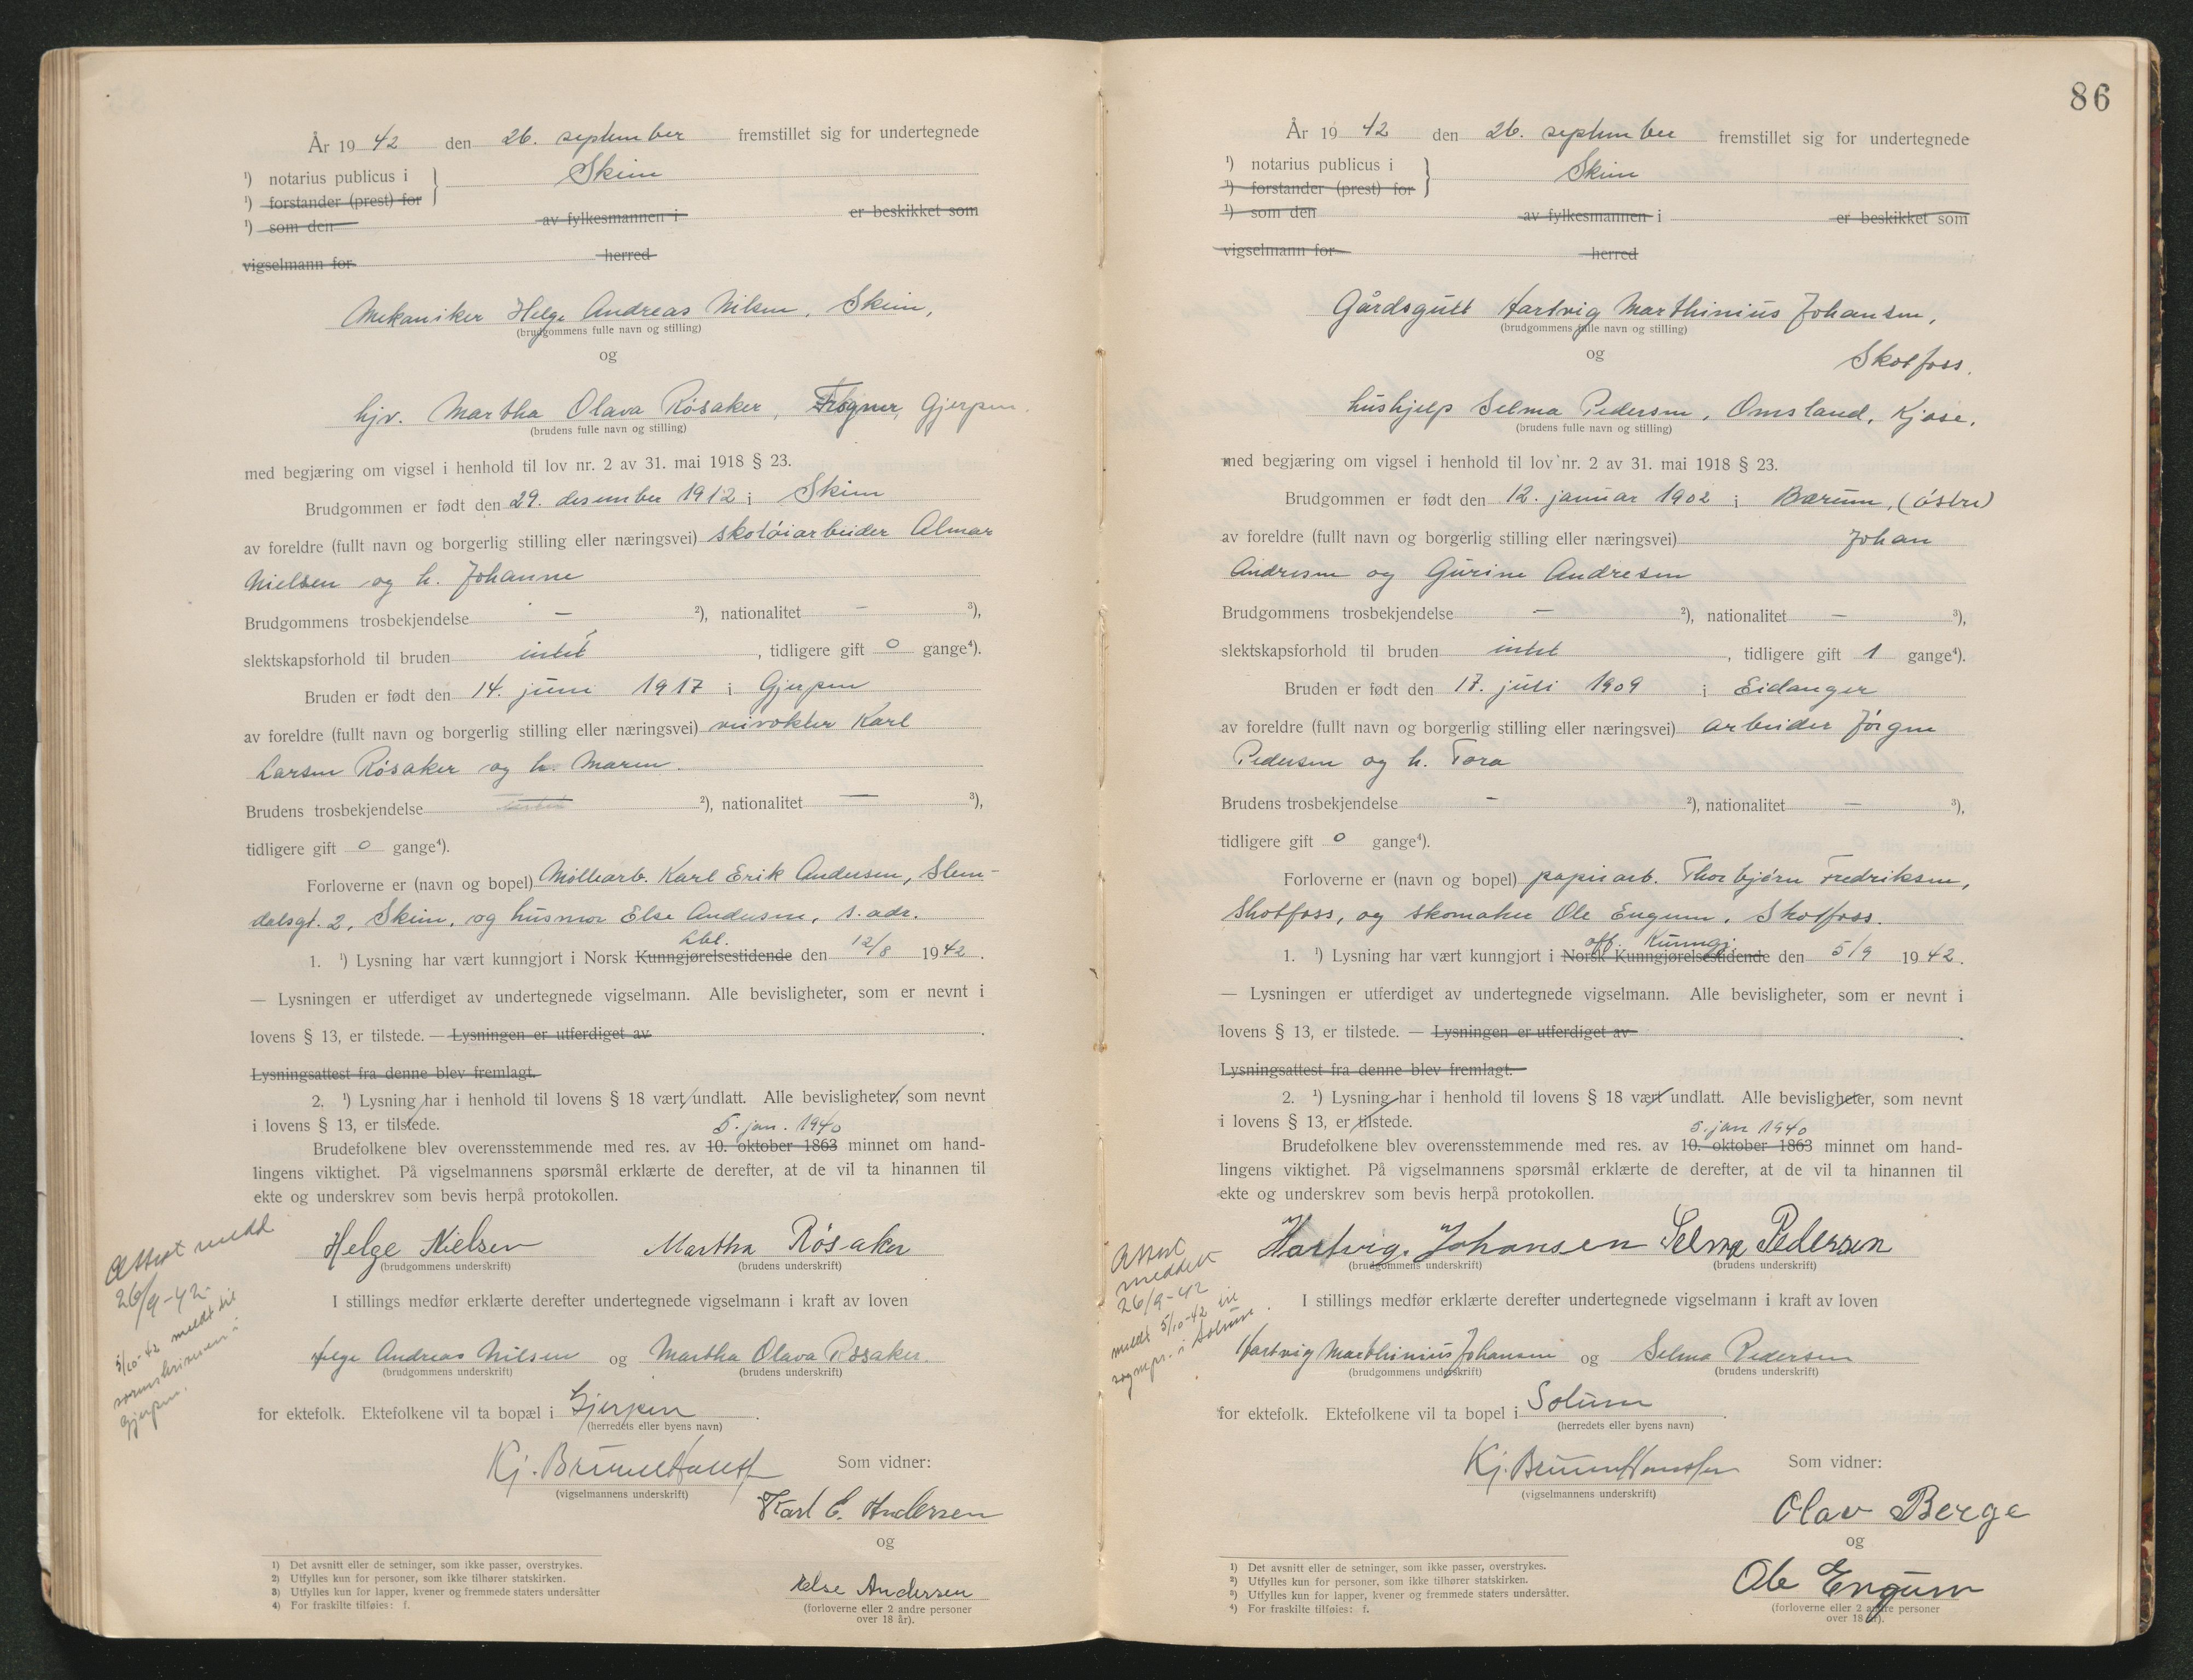 År 19 42 den 26. september fremstillet sig for undertegnede
¹) notarius publicus i } Skien
¹) forstander (prest) for
¹) som den av fylkesmannen i er beskikket som
vigselmann for herred
Mekaniker Helge Andreas Nilsen, Skien,
(brudgommens fulle navn og stilling)
og
hjv. Martha Olava Røsaker, Frogner, Gjerpen.
(brudens fulle navn og stilling)
med begjæring om vigsel i henhold til lov nr. 2 av 31. mai 1918 § 23.
Brudgommen er født den 29. desember 1912 i Skien
av foreldre (fullt navn og borgerlig stilling eller næringsvei) skotøiarbeider Almar
Nielsen og h. Johanne
Brudgommens trosbekjendelse – ²), nationalitet – ³),
slektskapsforhold til bruden intet, tidligere gift 0 gange⁴).
Bruden er født den 14. juni 1917 i Gjerpen
av foreldre (fullt navn og borgerlig stilling eller næringsvei) veivokter Karl
Larsen Røsaker og h. Maren.
Brudens trosbekjendelse ²), nationalitet — ³),
tidligere gift 0 gange⁴).
Forloverne er (navn og bopel) Møllearb. Karl Erik Andersen, Slem-
dalsgt. 2, Skien, og husmor Else Andersen, s. adr.
Lbl.
1. ¹) Lysning har vært kunngjort i Norsk Kunngjørelsestidende den 12/8 1942.
— Lysningen er utferdiget av undertegnede vigselmann. Alle bevisligheter, som er nevnt i
lovens § 13, er tilstede. — Lysningen er utferdiget av .
Lysningsattest fra denne blev fremlagt.
2. ¹) Lysning har i henhold til lovens § 18 vært undlatt. Alle bevisligheter, som nevnt
i lovens § 13, er tilstede.
5. jan. 1940
Brudefolkene blev overensstemmende med res. av 10. oktober 1863 minnet om hand-
lingens viktighet. På vigselmannens spørsmål erklærte de derefter, at de vil ta hinannen til
ekte og underskrev som bevis herpå protokollen.
Attest medd
26/9-42
5/10-42 meldt til
sorenskriveren i
Gjerpen.
Helge Nielsen Martha Røsaker
(brudgommens underskrift) (brudens underskrift)
I stillings medfør erklærte derefter undertegnede vigselmann i kraft av loven
Helge Andreas Nilsen og Martha Olava Røsaker.
(brudgommens underskrift) (brudens underskrift)
for ektefolk. Ektefolkene vil ta bopæl i Gjerpen .
(herredets eller byens navn)
Kj. Bruun Hanssen Som vidner:
(vigselmannens underskrift)
Karl E. Andersen
og
Else Andersen
(forloverne eller 2 andre personer
over 18 år).
1) Det avsnitt eller de setninger, som ikke passer, overstrykes.
2) Utfylles kun for personer, som ikke tilhører statskirken.
3) Utfylles kun for lapper, kvener og fremmede staters undersåtter
4) For fraskilte tilføies: f.
86
År 19 42 den 26. september fremstillet sig for undertegnede
¹) notarius publicus i } Skien
¹) forstander (prest) for
¹) som den av fylkesmannen i er beskikket som
vigselmann for herred
Gårdsgutt Hartvig Marthinius Johansen,
(brudgommens fulle navn og stilling)
og Skotfoss.
hushjelp Selma Pedersen, Omsland, Kjose.
(brudens fulle navn og stilling)
med begjæring om vigsel i henhold til lov nr. 2 av 31. mai 1918 § 23.
Brudgommen er født den 12. januar 1902 i Bærum, (østre)
av foreldre (fullt navn og borgerlig stilling eller næringsvei) Johan
Andresen og Gurine Andresen
Brudgommens trosbekjendelse — ²), nationalitet — ³),
slektskapsforhold til bruden intet, tidligere gift 1 gange⁴).
Bruden er født den 17. juli 1909 i Eidanger
av foreldre (fullt navn og borgerlig stilling eller næringsvei) arbeider Jørgen
Pedersen og h. Tora
Brudens trosbekjendelse - ²), nationalitet — ³),
tidligere gift 0 gange⁴).
Forloverne er (navn og bopel) papirarb. Thorbjørn Fredriksen,
Skotfoss, og skomaker Ole Engum, Skotfoss.
off. Kunngj.
1. ¹) Lysning har vært kunngjort i Norsk Kunngjørelsestidende den 5/9 1942.
— Lysningen er utferdiget av undertegnede vigselmann. Alle bevisligheter, som er nevnt i
lovens § 13, er tilstede. — Lysningen er utferdiget av .
Lysningsattest fra denne blev fremlagt.
2. ¹) Lysning har i henhold til lovens § 18 vært undlatt. Alle bevisligheter, som nevnt
i lovens § 13, er tilstede.
5. jan 1940
Brudefolkene blev overensstemmende med res. av 10. oktober 1863 minnet om hand-
lingens viktighet. På vigselmannens spørsmål erklærte de derefter, at de vil ta hinannen til
ekte og underskrev som bevis herpå protokollen.
Attest
meddelt
26/9-42
meldt 5/10-42 til
sognepr. i Solum.
Hartvig. Johansen Selma Pedersen
(brudgommens underskrift) (brudens underskrift)
I stillings medfør erklærte derefter undertegnede vigselmann i kraft av loven
Hartvig Marthinius Johansen og Selma Pedersen
(brudgommens underskrift) (brudens underskrift)
for ektefolk. Ektefolkene vil ta bopel i Solum .
(herredets eller byens navn)
Kj. Bruun Hanssen Som vidner:
(vigselmannens underskrift)
Olav Berge
og
Ole Engum
(forloverne eller 2 andre personer
over 18 år).
¹) Det avsnitt eller de setninger, som ikke passer, overstrykes.
²) Utfylles kun for personer, som ikke tilhører statskirken.
³) Utfylles kun for lapper, kvener og fremmede staters undersåtter.
⁴) For fraskilte tilføies: f.